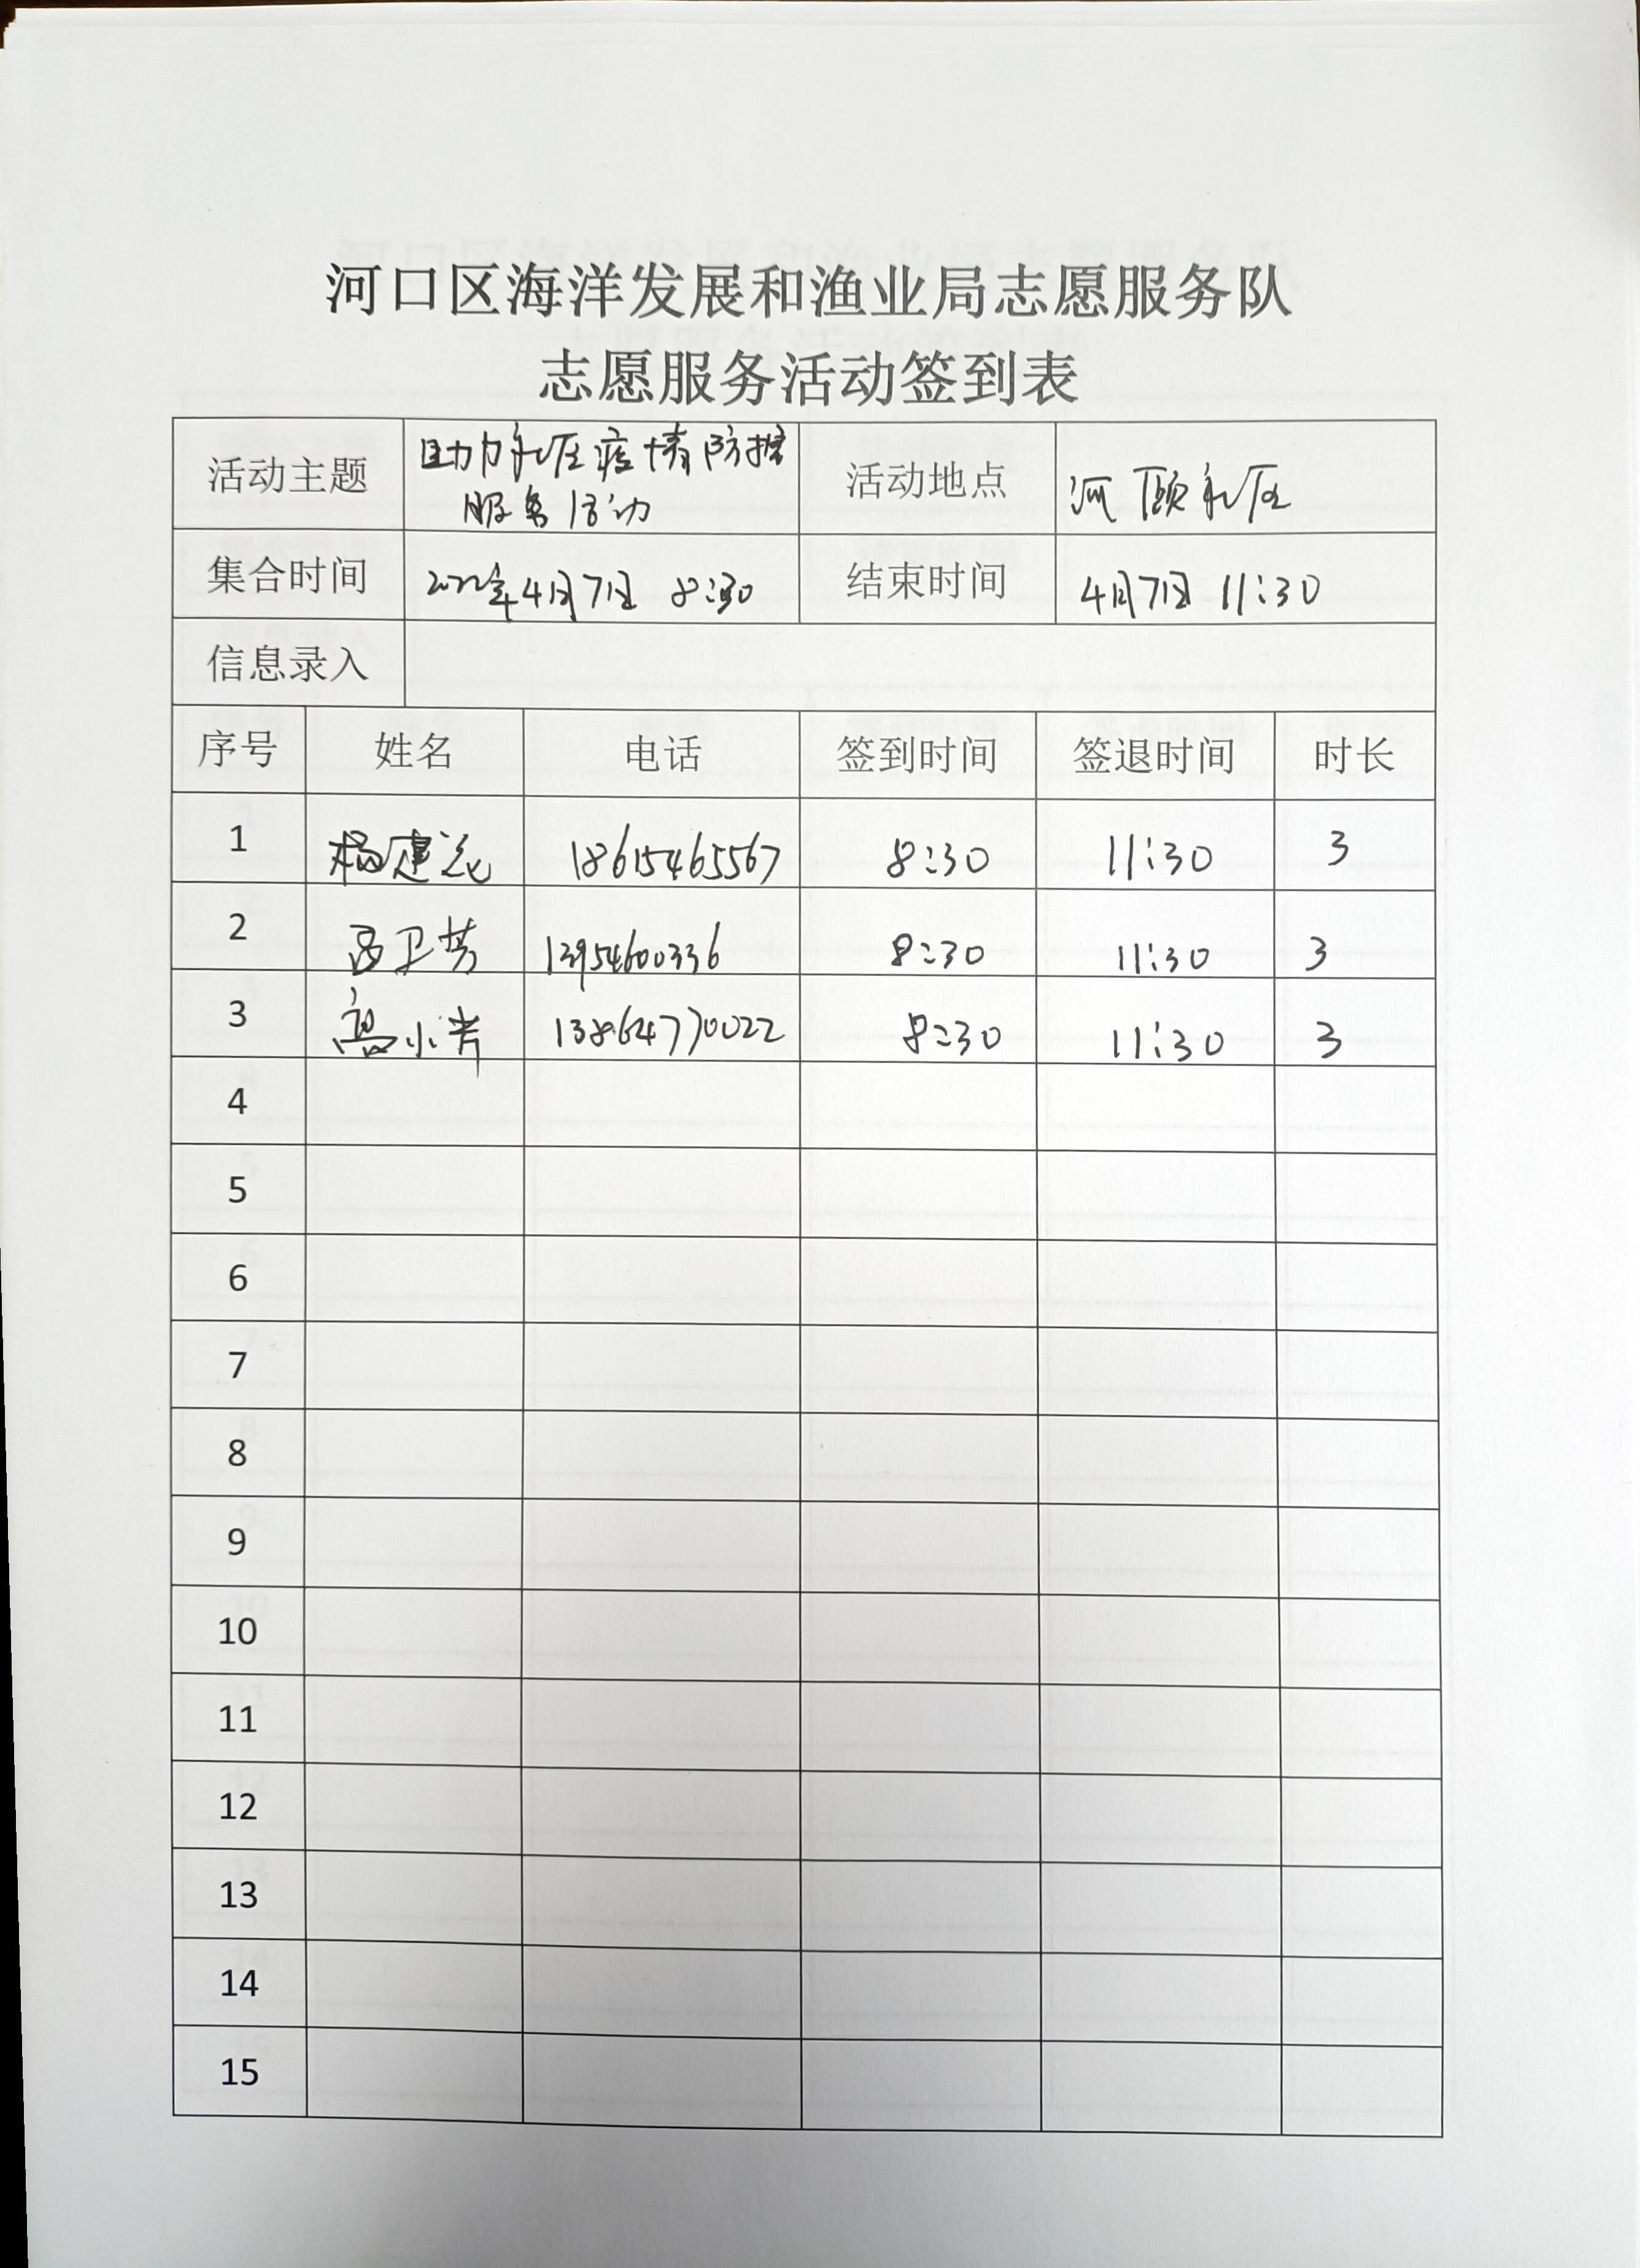 河口区海洋发展和渔业局志愿服务队
志愿服务活动签到表
活动主题 助力社区疫情防控 服务活动 活动地点 河颐社区
集合时间 2022年4月7日 8:30 结束时间 4月7日 11:30
信息录入
序号 姓名 电话 签到时间 签退时间 时长
1 杨建 18615465567 8:30 11:30 3
2 卫芳 13954600336 8:30 11:30 3
3 高小 13864770022 8:30 11:30 3
4
5
6
7
8
9
10
11
12
13
14
15